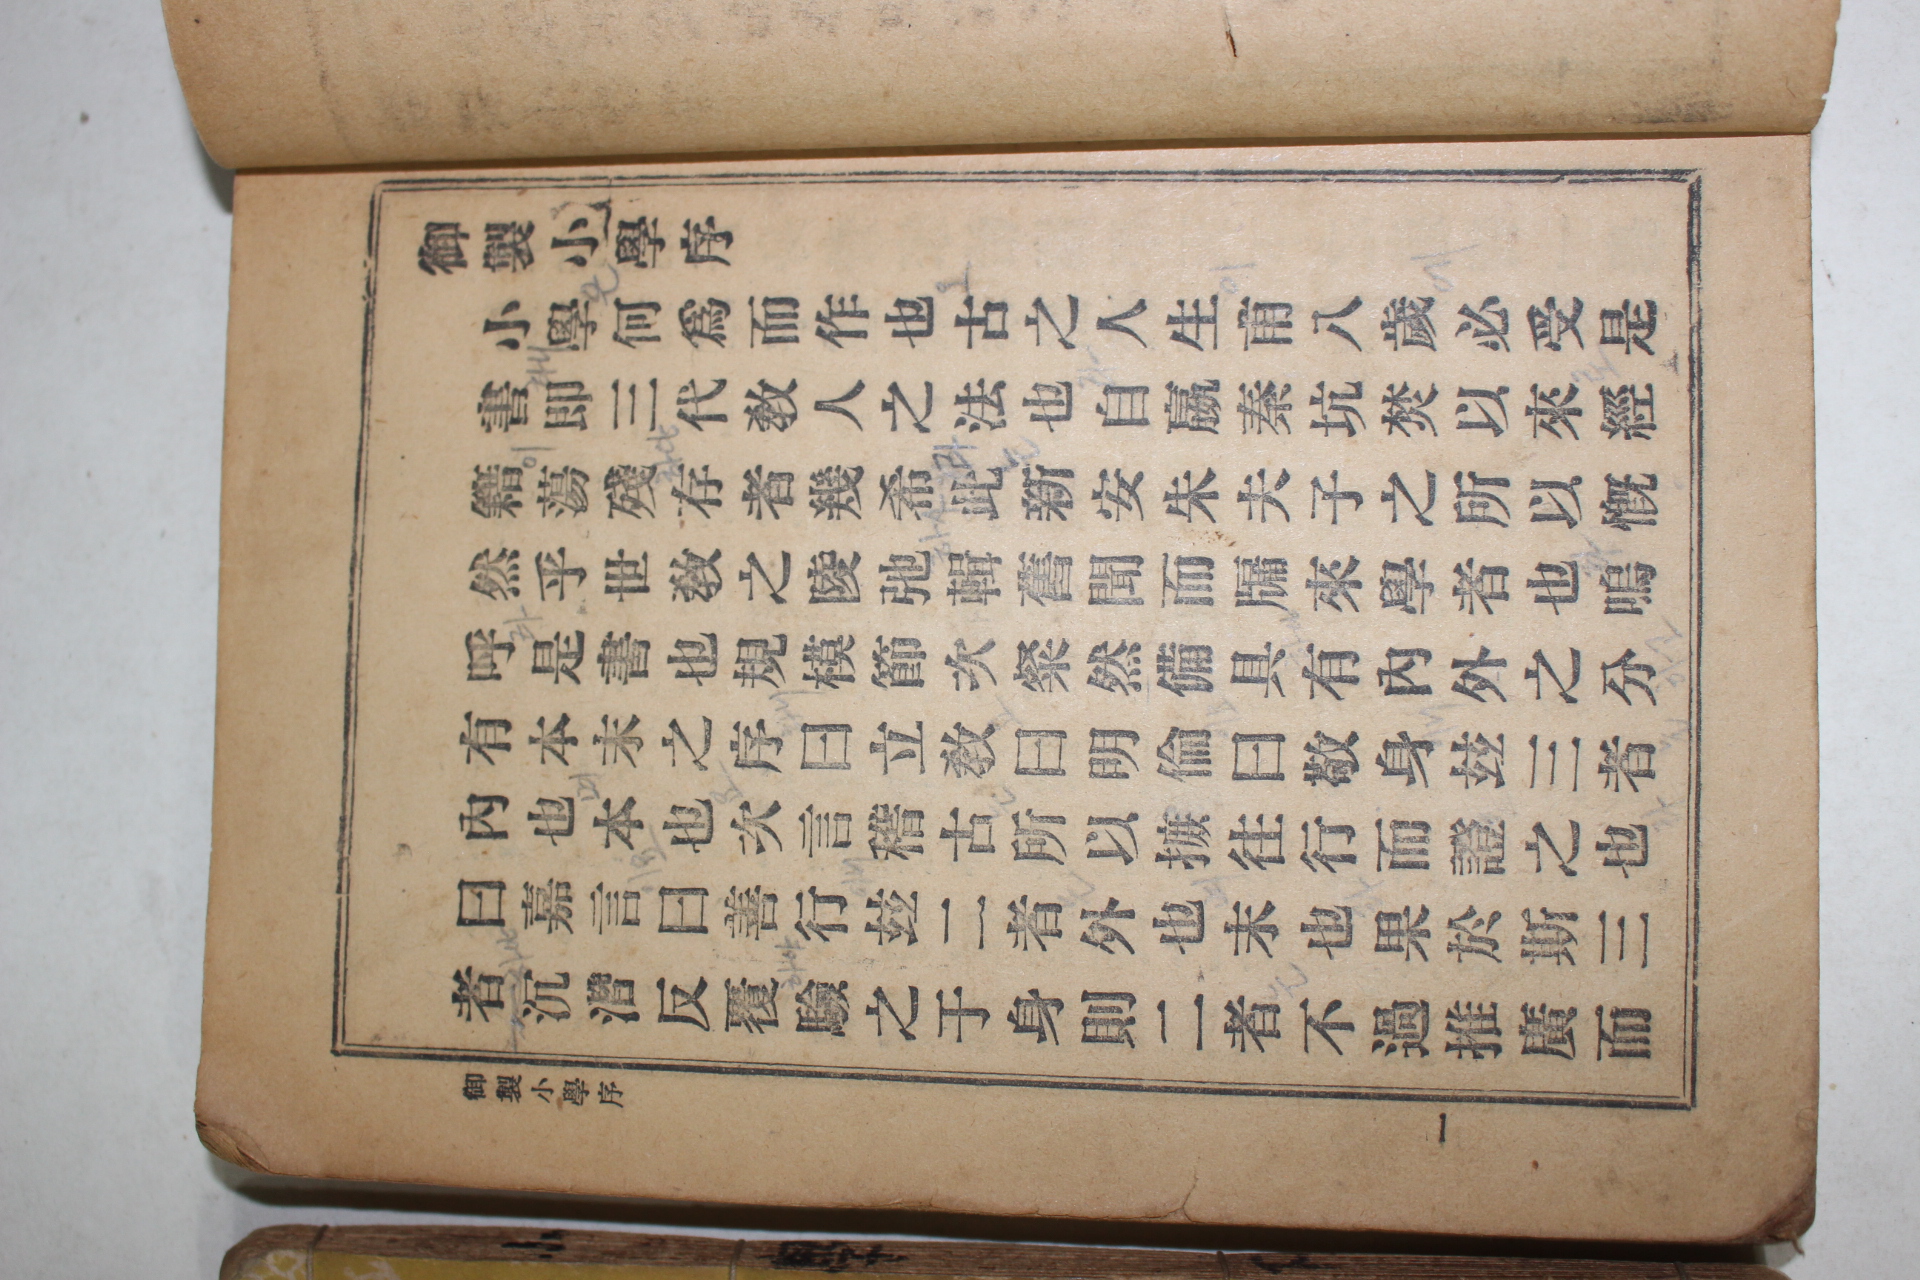 御製小學序
小學何爲而作也古之人生甫八歲必受是
書即三代敎人之法也自嬴秦坑焚以來經
籍蕩殘存者幾希此新安朱夫子之所以慨
然乎世敎之陵弛輯舊聞而牖來學者也嗚
呼是書也規模節次粲然備具有內外之分
有本末之序曰立敎曰明倫曰敬身玆三者
內也本也次言稽古所以摭往行而證之也
曰嘉言曰善行玆二者外也末也果於斯三
者沉潛反覆驗之于身則二者不過推廣而
御製小學序
一
小學